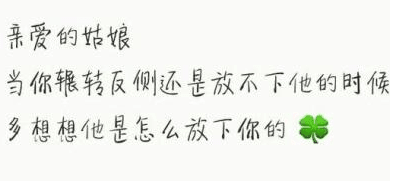 亲爱的姑娘
当你辗转反侧还是放不下他的时候
多想想他是怎么放下你的 🍀